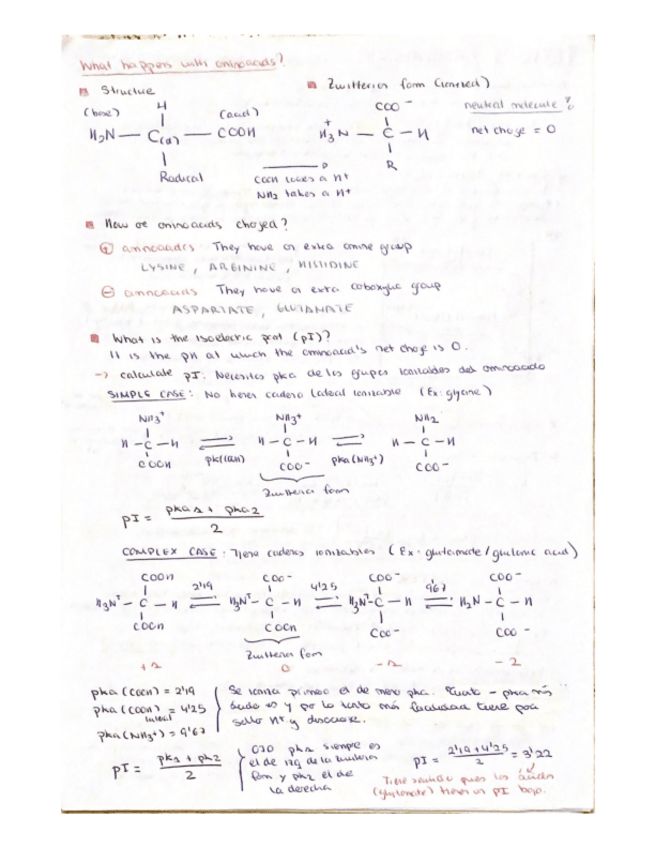 What happens with aminoacids?
Structure
Zwitterion form (ionized)
(base) H (acid)
H₂N — C(α) — COOH
Radical
COOH loses a H+
NH₂ takes a H+
COO⁻
H₃N⁺ — C — H
R
neutral molecule
net charge = 0
How are aminoacids charged?
⊕ aminoacids They have an extra amine group
LYSINE, ARGININE, HISTIDINE
⊖ aminoacids They have an extra carboxylic group
ASPARTATE, GLUTAMATE
What is the isoelectric point (pI)?
It is the pH at which the aminoacid's net charge is 0.
→ calculate pI: Necesitas pka de los grupos ionizables del aminoácido
SIMPLE CASE: No tienes cadena lateral ionizable (Ex: glycine)
NH₃⁺ NH₃⁺ NH₂
H – C – H ⇌ H – C – H ⇌ H – C – H
COOH pk(COOH) COO⁻ pka(NH₃⁺) COO⁻
Zwitterion form
pI = pka1 + pka2 / 2
COMPLEX CASE: Tiene cadenas ionizables (Ex: glutamate / glutamic acid)
COOH COO⁻ COO⁻ COO⁻
H₃N⁺ – C – H ⇌ 2'19 H₃N⁺ – C – H ⇌ 4'25 H₃N⁺ – C – H ⇌ 9'67 H₂N – C – H
COOH COOH COO⁻ COO⁻
Zwitterion form
+1 0 -1 -2
pka (COOH) = 2'19
pka (COOH) lateral = 4'25
pka (NH₃⁺) = 9'67
Se ioniza primero el de menor pka. Cuanto – pka más
ácido es y por lo tanto más facilidad tiene para
soltar H⁺ y disociarse.
pI = pk1 + pk2 / 2
OJO pk1 siempre es
el de izq de la zwitterion
form y pk2 el de
la derecha
pI = 2'19 + 4'25 / 2 = 3'22
Tiene sentido pues los ácidos
(glutamate) tienen un pI bajo.